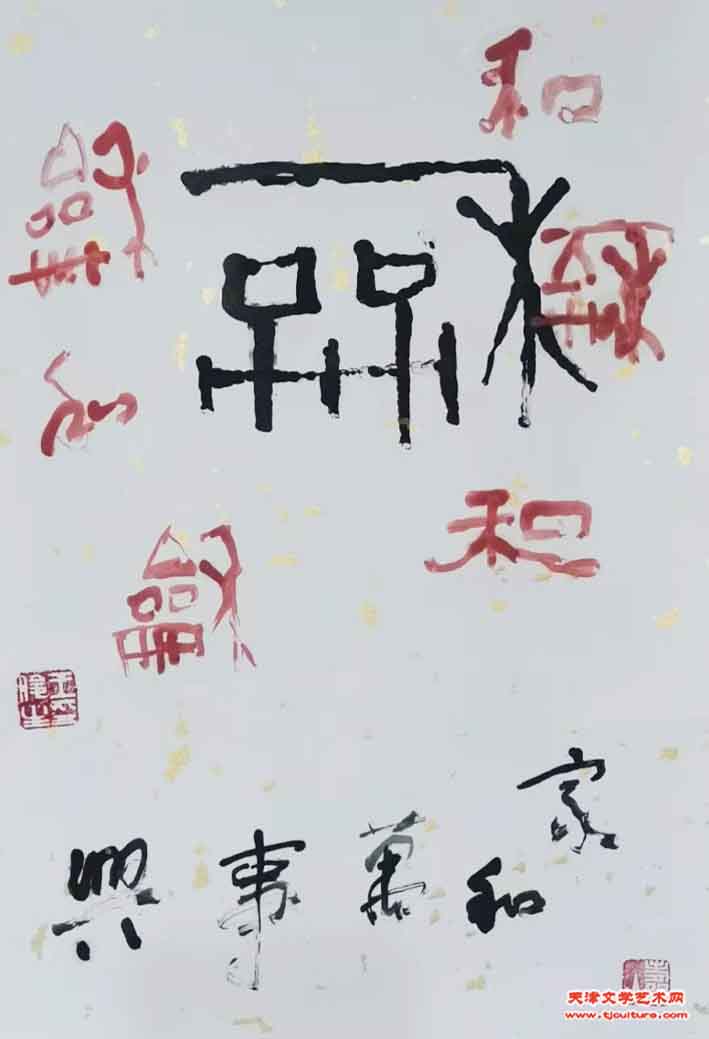 和
龢
龢
龢
和
和
龢
家和萬事興
天津文学艺术网
www.tjculture.com